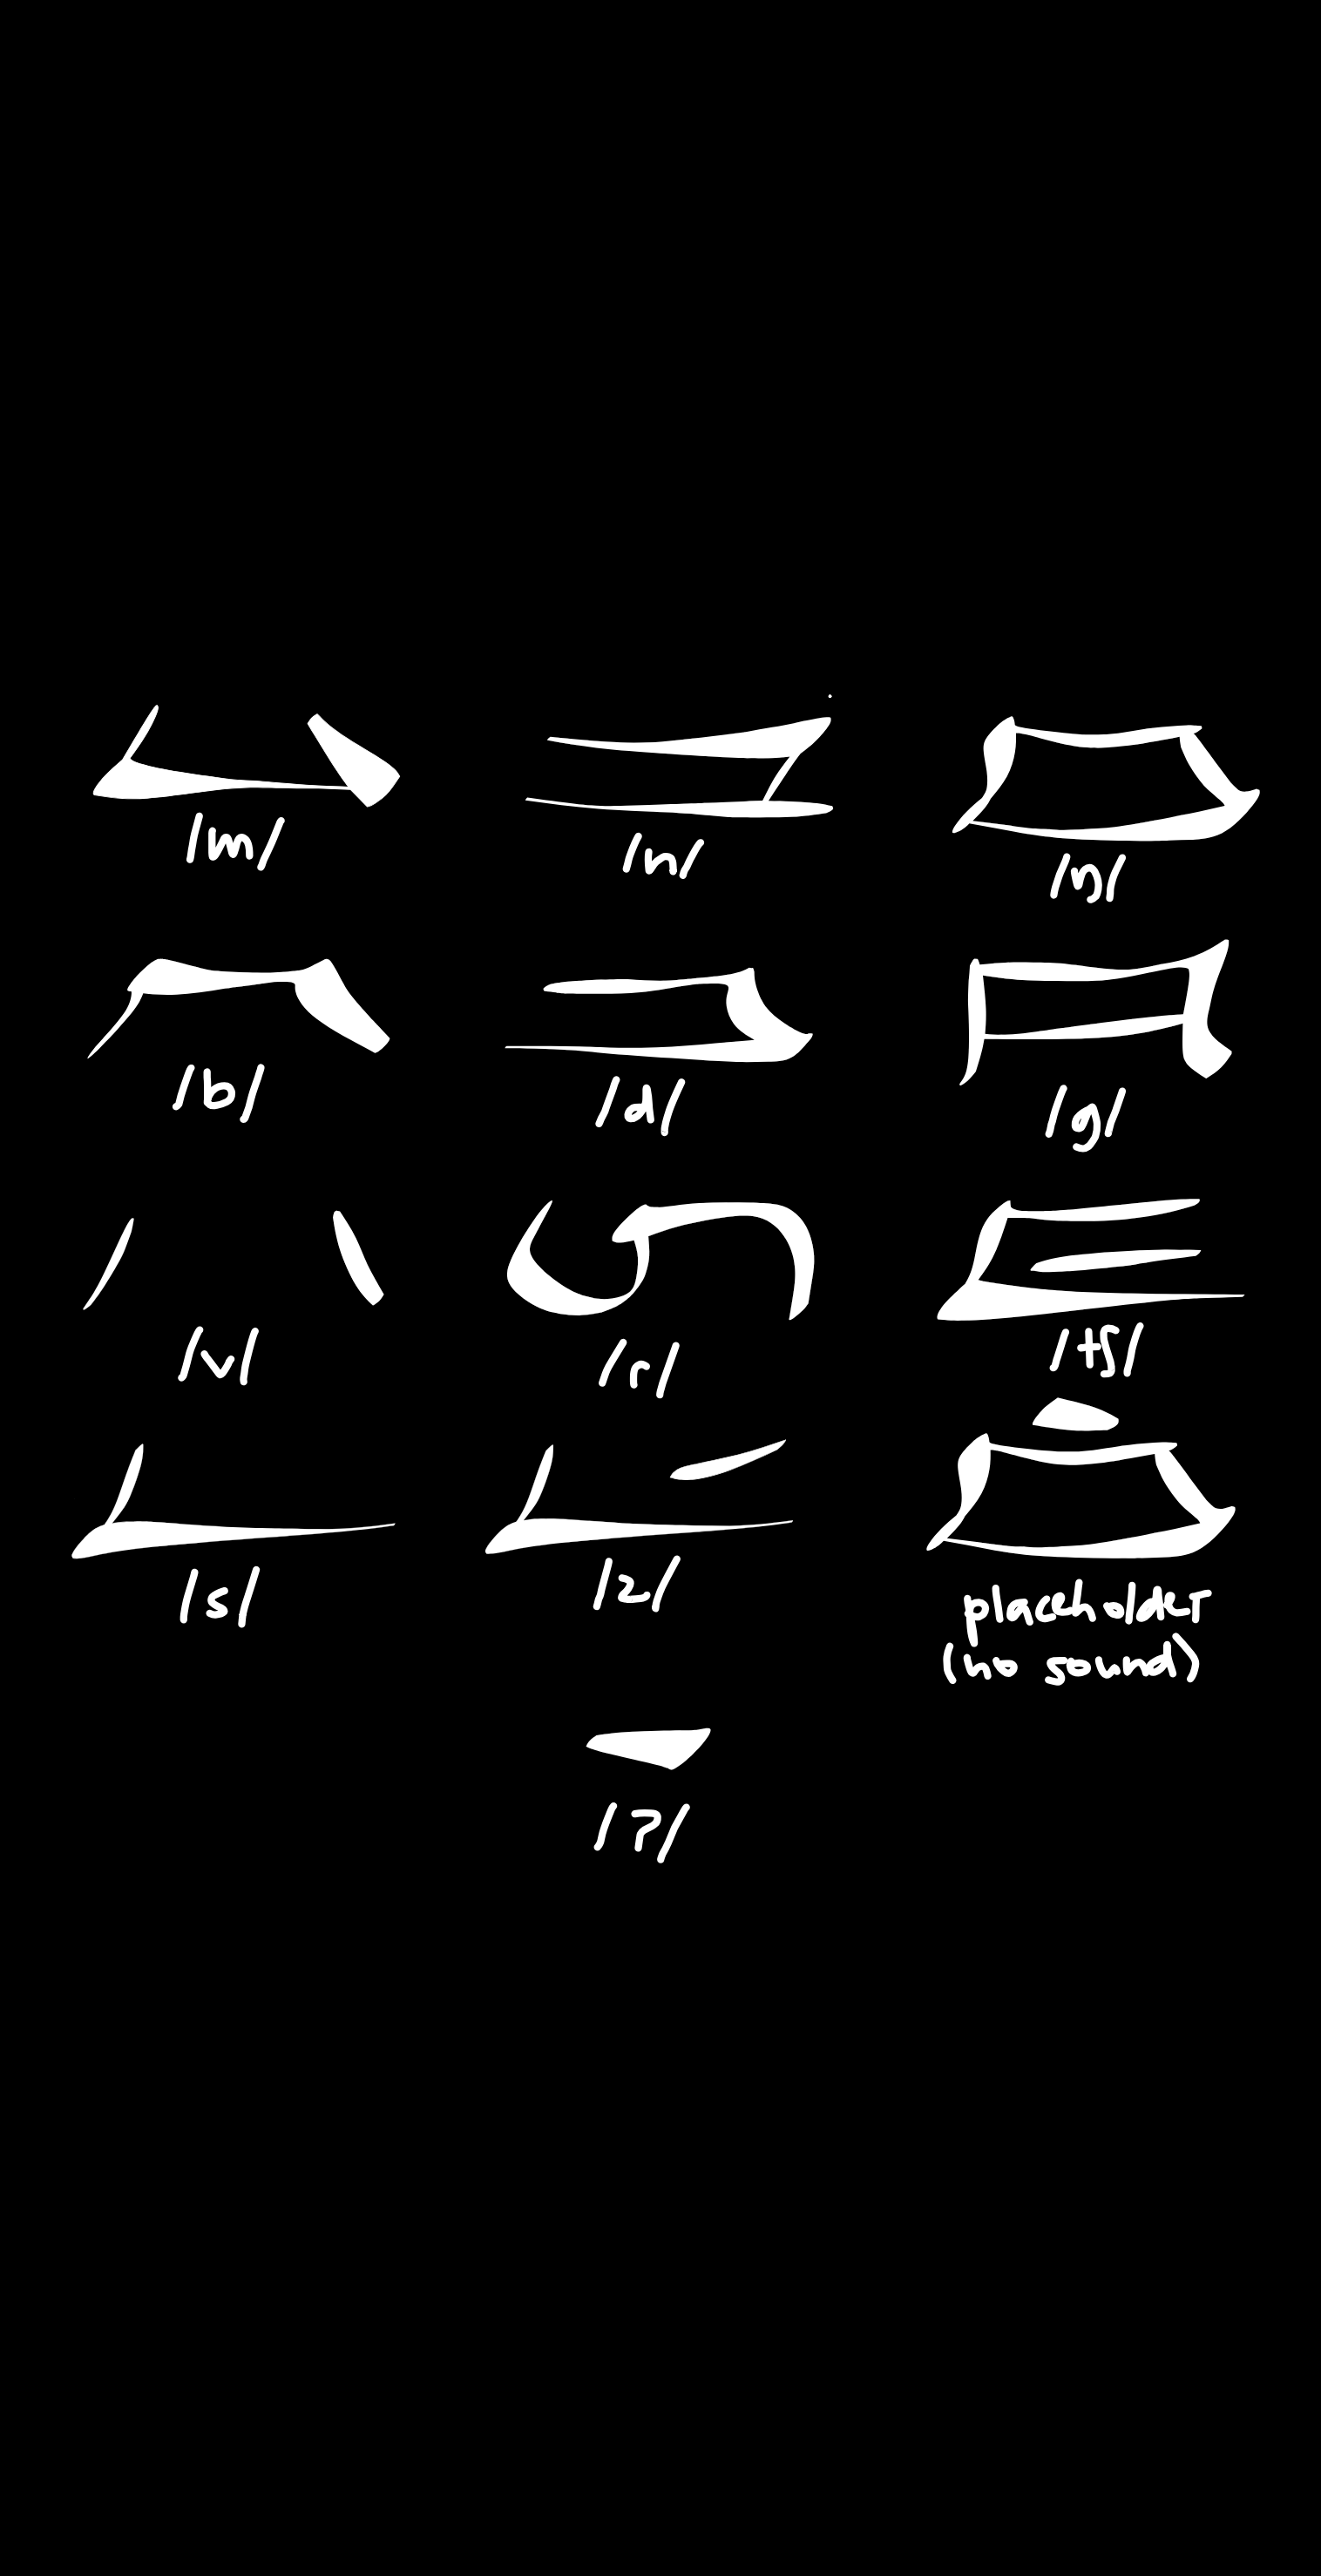 /m/ /n/ /ŋ/
/b/ /d/ /g/
/v/ /r/ /tʃ/
/s/ /z/ placeholder
(no sound)
/?/